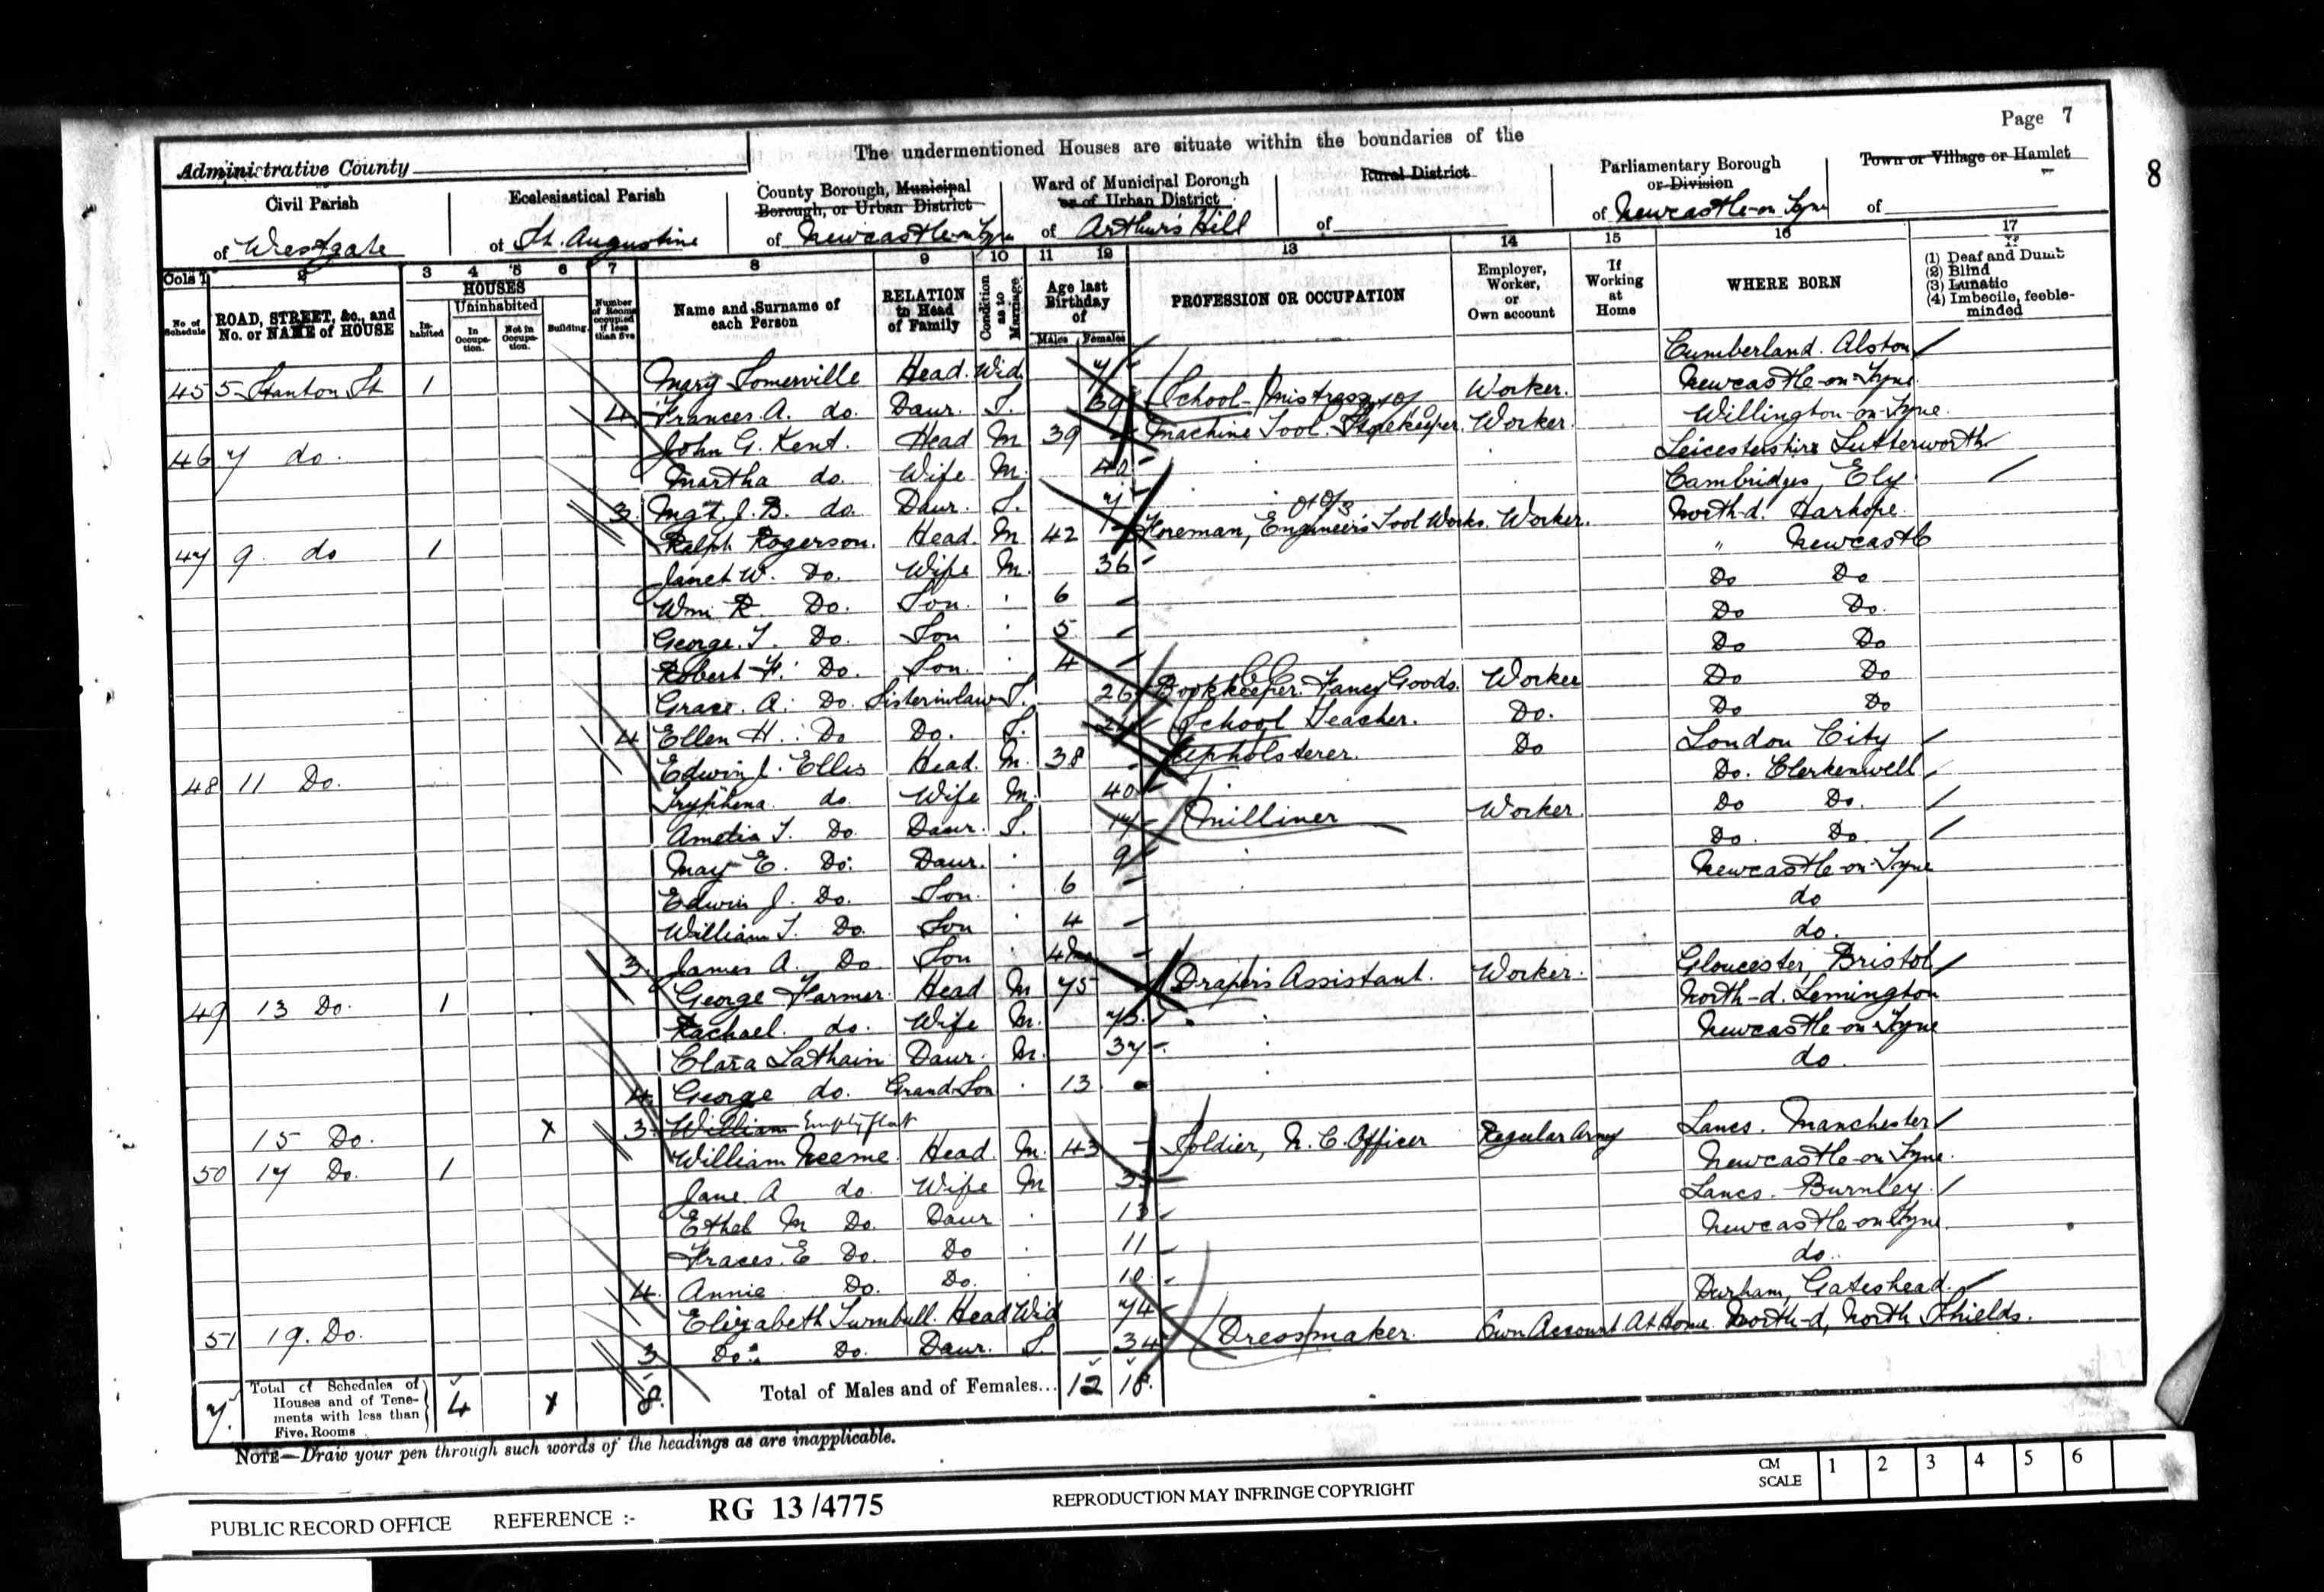 Page 7
8
The undermentioned Houses are situate within the boundaries of the
Administrative County
Civil Parish
of Westgate
Ecclesiastical Parish
of St. Augustine
County Borough, Municipal Borough, or Urban District
of Newcastle on Tyne
Ward of Municipal Borough or of Urban District
of Arthur's Hill
Rural District
of
Parliamentary Borough or Division
of Newcastle on Tyne
Town or Village or Hamlet
of
Cols 1 2 3 4 5 6 7 8 9 10 11 12 13 14 15 16 17
No. of Schedule
ROAD, STREET, &c., and No. or NAME of HOUSE
HOUSES
Inhabited
Uninhabited
In Occupation.
Not in Occupation.
Building.
Number of Rooms occupied if less than five
Name and Surname of each Person
RELATION to Head of Family
Condition as to Marriage
Age last Birthday of
Males Females
PROFESSION OR OCCUPATION
Employer, Worker, or Own account
If Working at Home
WHERE BORN
If
(1) Deaf and Dumb
(2) Blind
(3) Lunatic
(4) Imbecile, feeble-minded
45 5 Stanton St 1 Mary Somerville Head Wid 71 Cumberland. Alston
4 Frances A. do. Daur. S. 39 School-Mistress Worker. Newcastle-on-Tyne
46 7 do. John G. Kent. Head M 39 Machine Tool Storekeeper. Worker. Willington-on-Tyne
Martha do. Wife M. 40 Leicestershire Lutterworth
3. Mgt. J. B. do. Daur. S. Cambridges, Ely
47 9. do 1 Ralph Rogerson. Head. M 42 Foreman, Engineer's Tool Works. Worker. North-d. Harhope
Janet W. Do. Wife M. 36 " Newcastle
Wm. R. Do. Son. 6 Do Do
George. T. Do. Son 5 Do Do.
Robert F. Do. Son. 4 Do Do
Grace. A. Do. Sisterinlaw S. 26 Bookkeeper. Fancy Goods. Worker Do Do
4 Ellen H. Do Do. S. School Teacher. Do. Do Do
48 11 Do. Edwin J. Ellis Head. M. 38 Upholsterer. Do London City
Tryphena do. Wife M. 40 Do. Clerkenwell
Amelia T. Do. Daur. S. 17 Milliner Worker. Do Do.
May E. Do. Daur. 9 Do. Do.
Edwin J. Do. Son. 6 Newcastle-on-Tyne
William T. Do. Son 4 do
3. James A. Do Son do.
49 13 Do. 1 George Farmer. Head M 75 Draper's Assistant. Worker. Gloucester, Bristol
Rachael. do. Wife M. 73. North-d. Lemington
Clara Lathain Daur. M. 37 Newcastle-on-Tyne
4. George do. Grand-Son 13 do
15 Do. X 3 William Empty flat
50 17 Do. 1 William Neeme. Head. M. 43 Soldier, N. C. Officer Regular Army Lancs. Manchester
Jane A do. Wife M 33 Newcastle-on Tyne.
Ethel M Do. Daur 13 Lancs. Burnley.
Fraces. E Do. Do 11 Newcastle-on-Tyne
4. Annie Do. Do. 10. do.
51 19. Do. Elizabeth Turnbull. Head Wid 74 Durham, Gateshead.
3 Do. Do. Daur. S 34 Dressmaker. Own Account At Home North-d, North Shields.
7. Total of Schedules of Houses and of Tenements with less than Five Rooms 4 X 8. Total of Males and of Females... 12 18.
NOTE—Draw your pen through such words of the headings as are inapplicable.
CM SCALE 1 2 3 4 5 6
PUBLIC RECORD OFFICE REFERENCE :- RG 13/4775 REPRODUCTION MAY INFRINGE COPYRIGHT